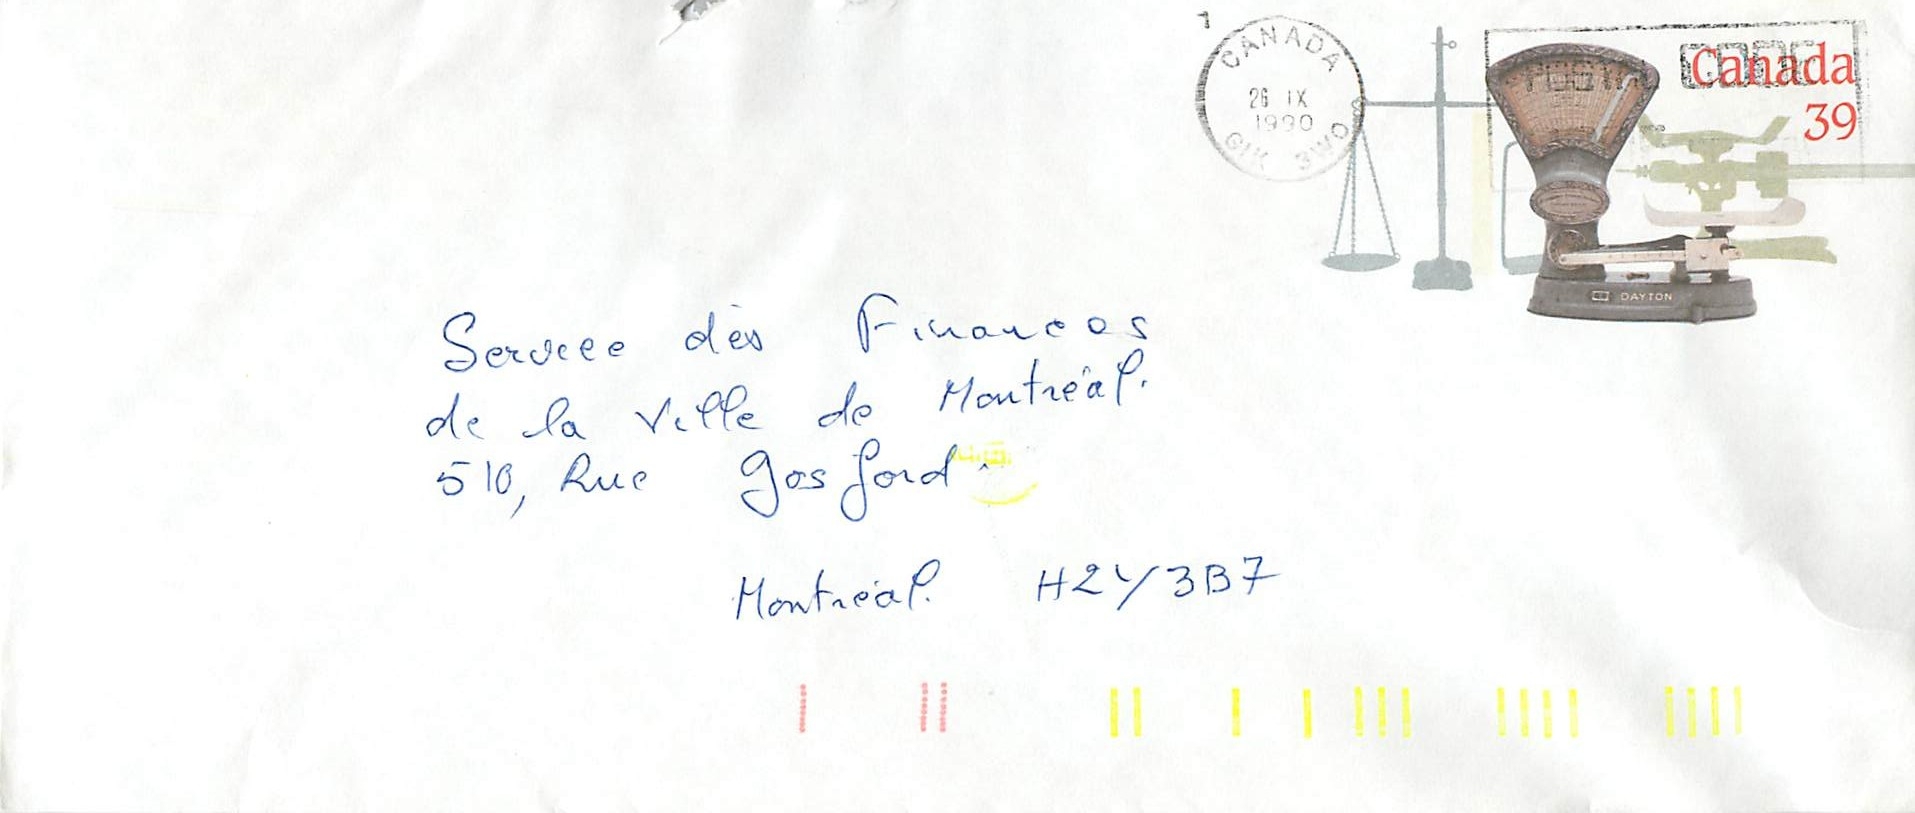 CANADA
26 IX
1990
G1K 3W0
Canada
39
DAYTON
Service des Finances
de la Ville de Montréal.
510, Rue Gosford.
Montréal. H2Y 3B7